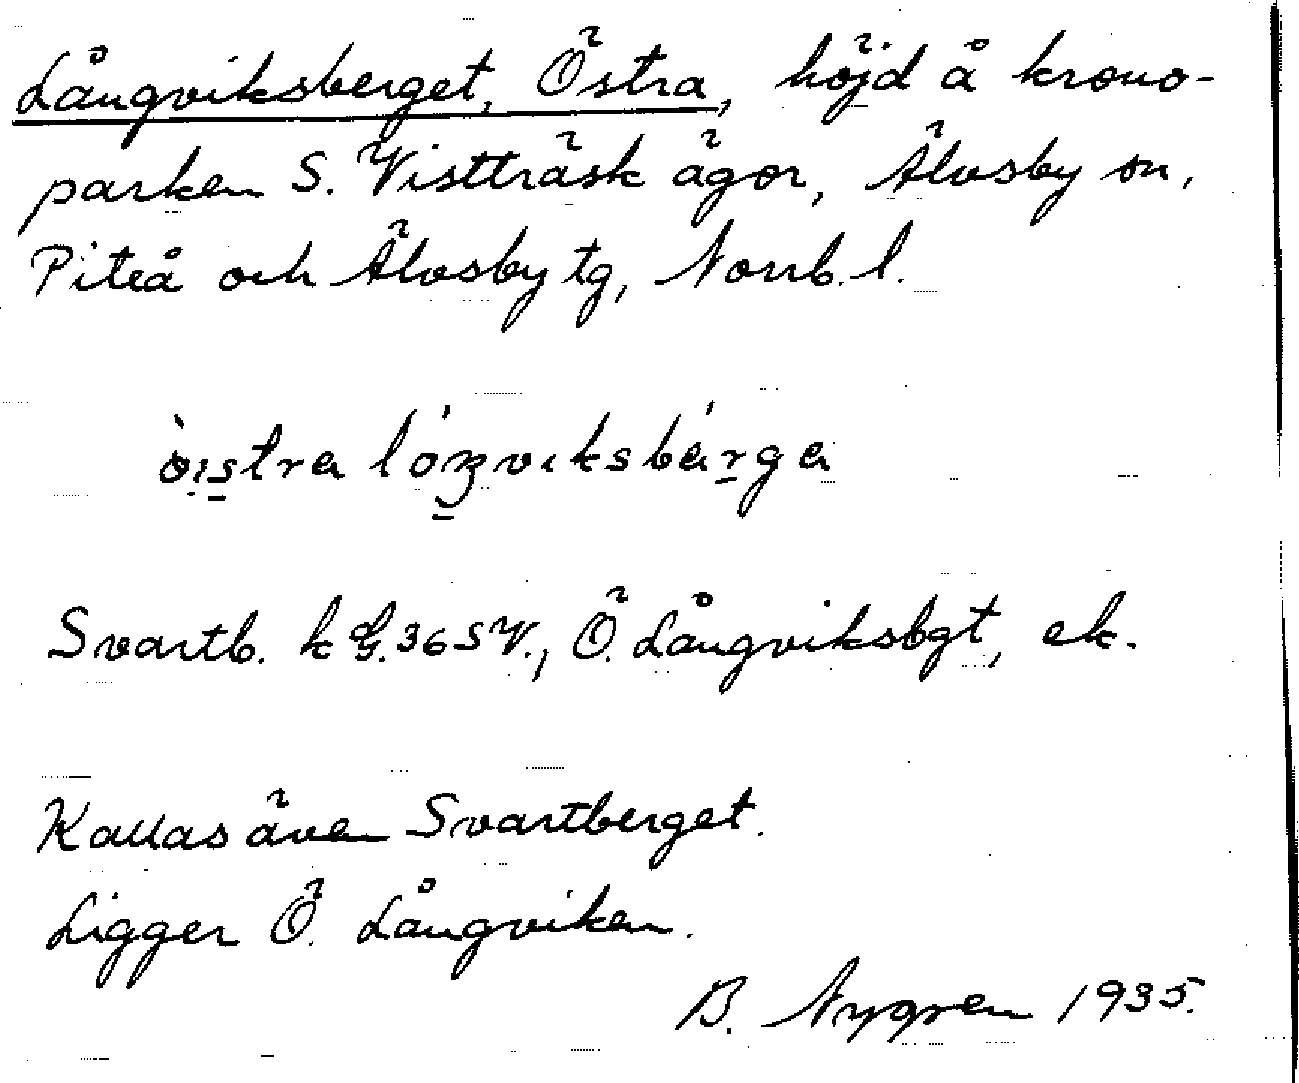 Långviksberget, Östra, höjd å krono-
parken S. Vistträsk ägor, Älvsby sn,
Piteå och Älvsby tg, Norrb. l.
östra lóŋviksbärga
Svartb. k G. 36 SV., Ö. Långviksbgt, ek.
Kallas även Svartberget.
Ligger Ö. Långviken.
B. Nygren 1935.